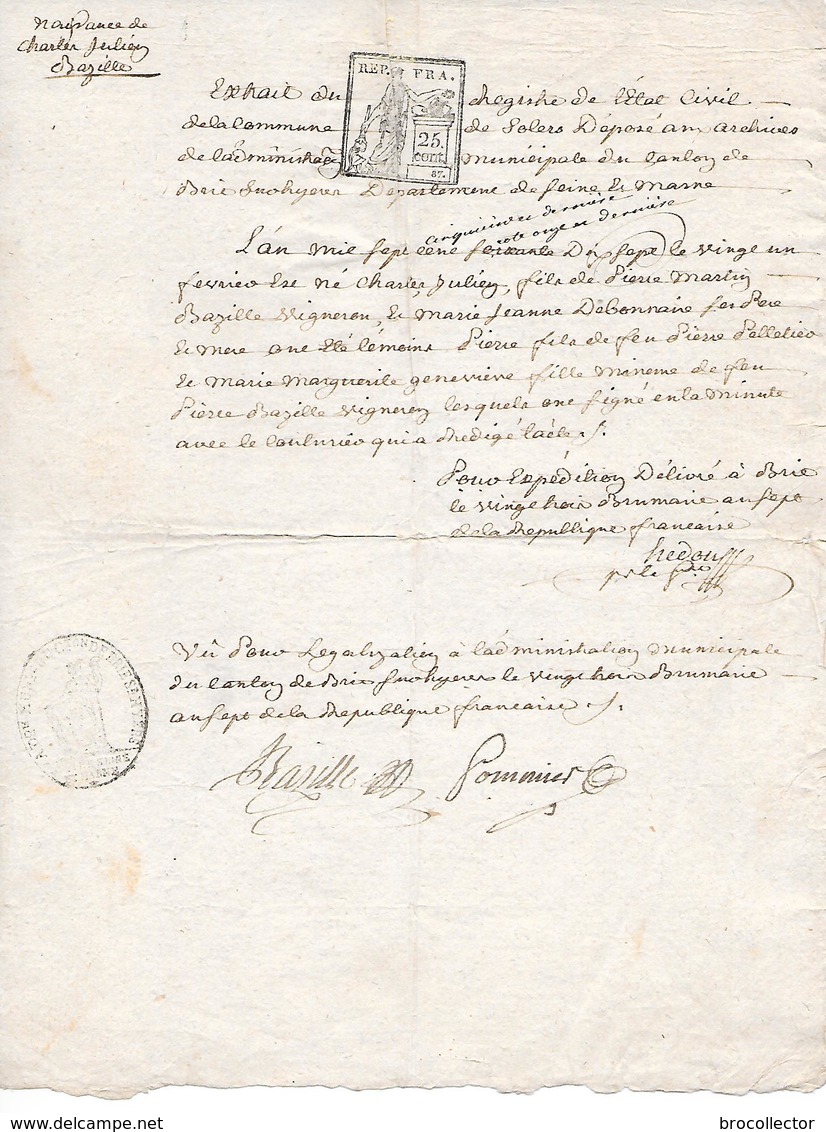 Naissance de
Charles Julien
Bazille
REP. FRA.
25.
cent.
87.
Extrait du Registre de l'Etat Civil
de la Commune de Solers Déposé aux archives
de l'administra municipale du Canton de
Brie Sur hyeres Departement de Seine et Marne
cinquieme et derniere
cote onze et derniere
L'an mil sept cent soixante Dix sept le vingt un
fevrier Est né Charles Julien, fils de Pierre Martin
Bazille Vigneron, et Marie Jeanne Debonnaire ses Pere
et mere ont Eté témoins Pierre fils de feu Pierre Pelletier
et Marie Marguerite genevieve fille mineure de feu
Pierre Bazille Vigneron lesquels ont signé en la minute
avec le Couturier qui a Redigé l'acte
Pour Expédition Délivré à Brie
le vingt trois Brumaire an sept
de la Republique francaise
hedou
Vû Pour Legalization à l'administration Municipale
du Canton de Brie Sur hyeres le vingt trois Brumaire
an sept de la Republique francaise
Bazille Pommier
delcampe.net
brocollector